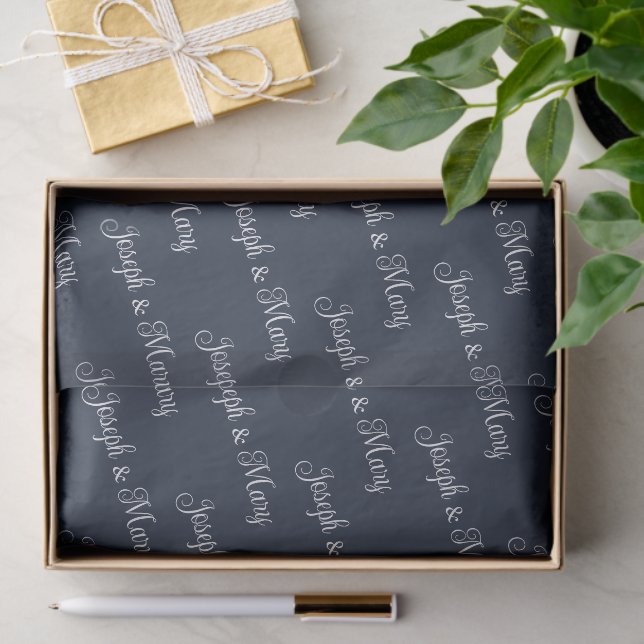 Mary
Joseph & Mary
Mary
Joseph & Mary
Joseph & Mary
Joseph & Mary
Joseph & Mary
Mary
Joseph & Mary
Joseph & Mary
Joseph & Mary
Joseph & M
Joseph